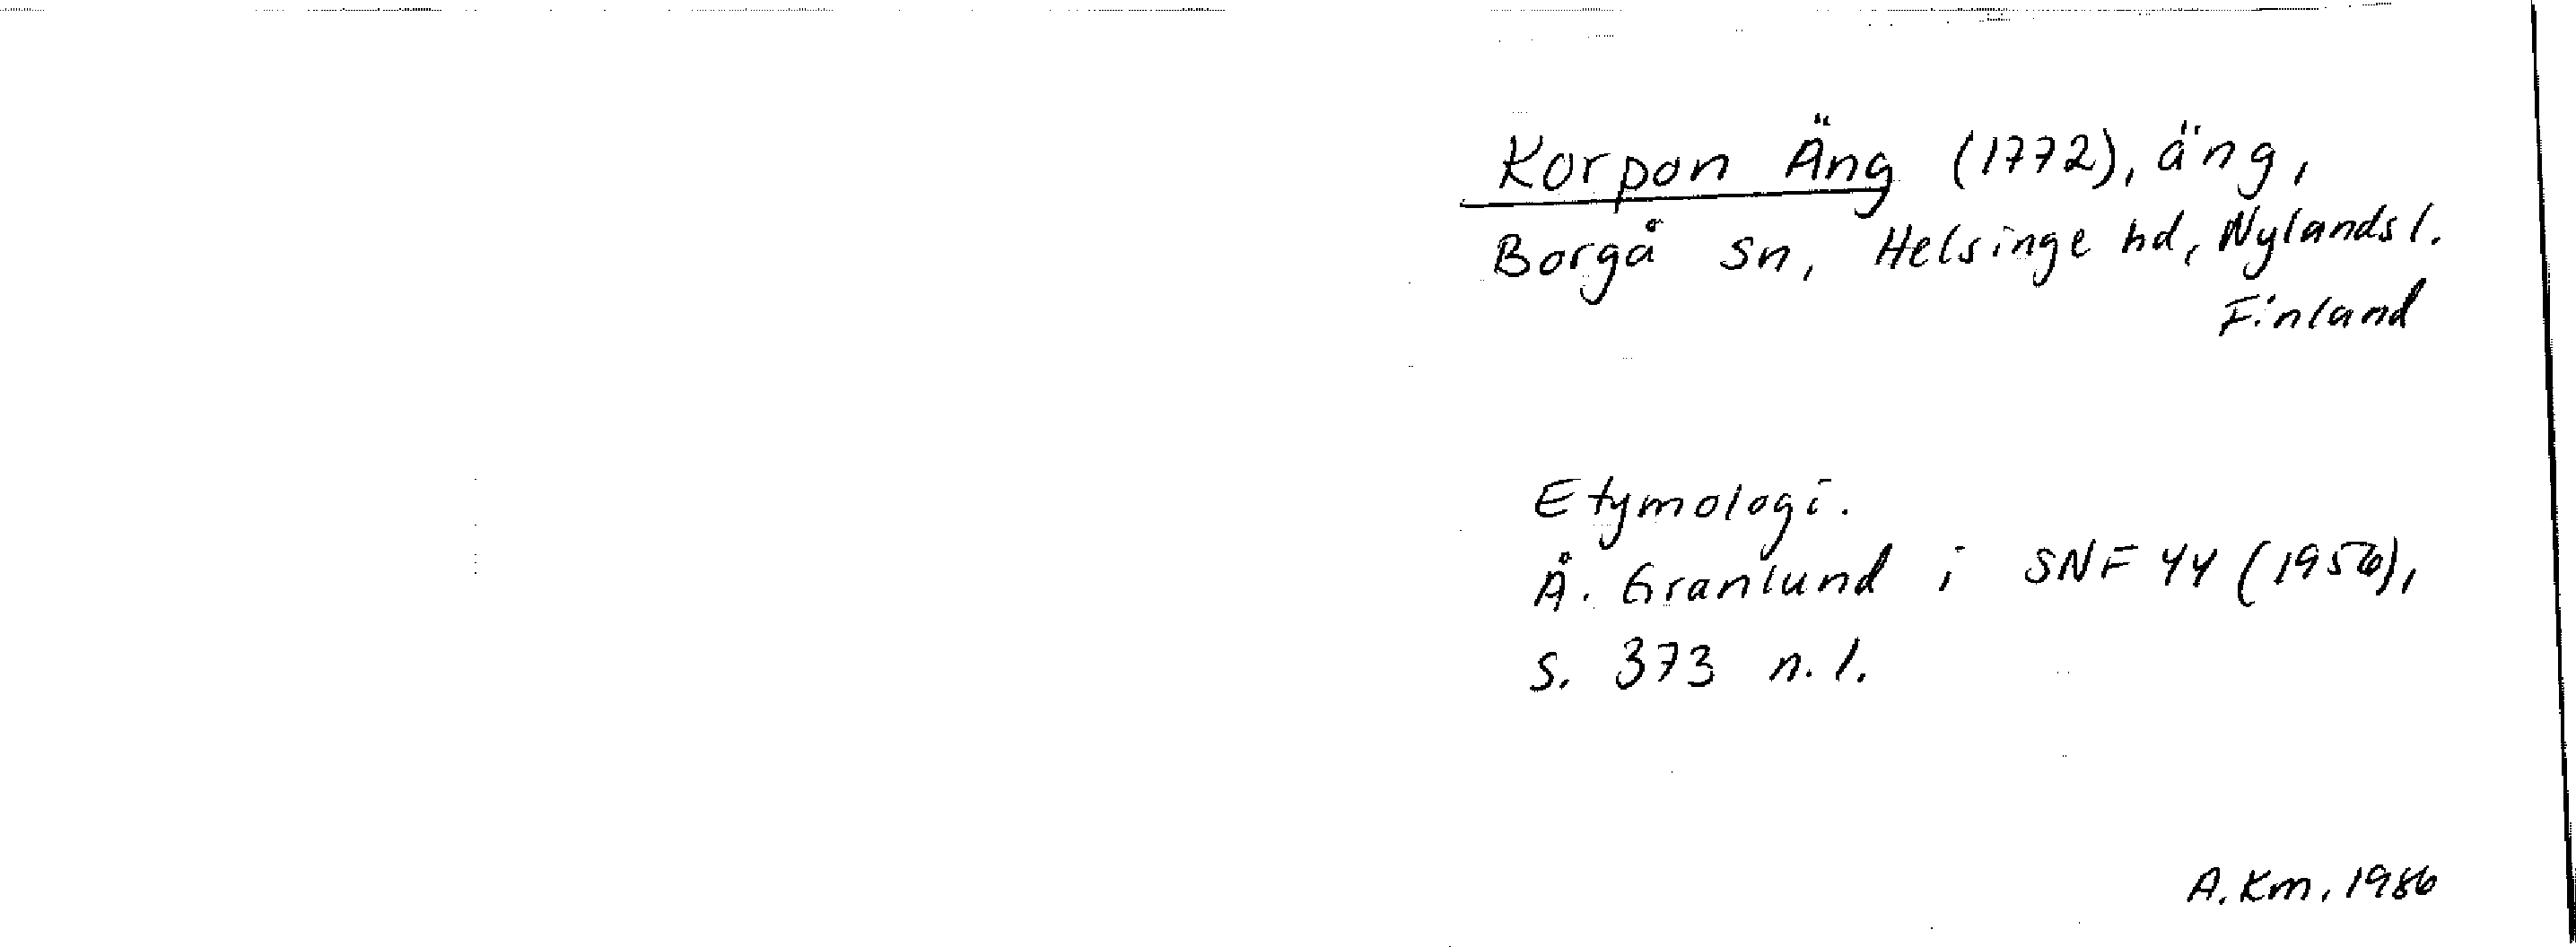 Korpon Äng (1772), äng,
Borgå sn, Helsinge hd, Nylands l.
Finland
Etymologi.
Å. Granlund i SNF 44 (1956),
s. 373 n.l.
A. Km. 1986